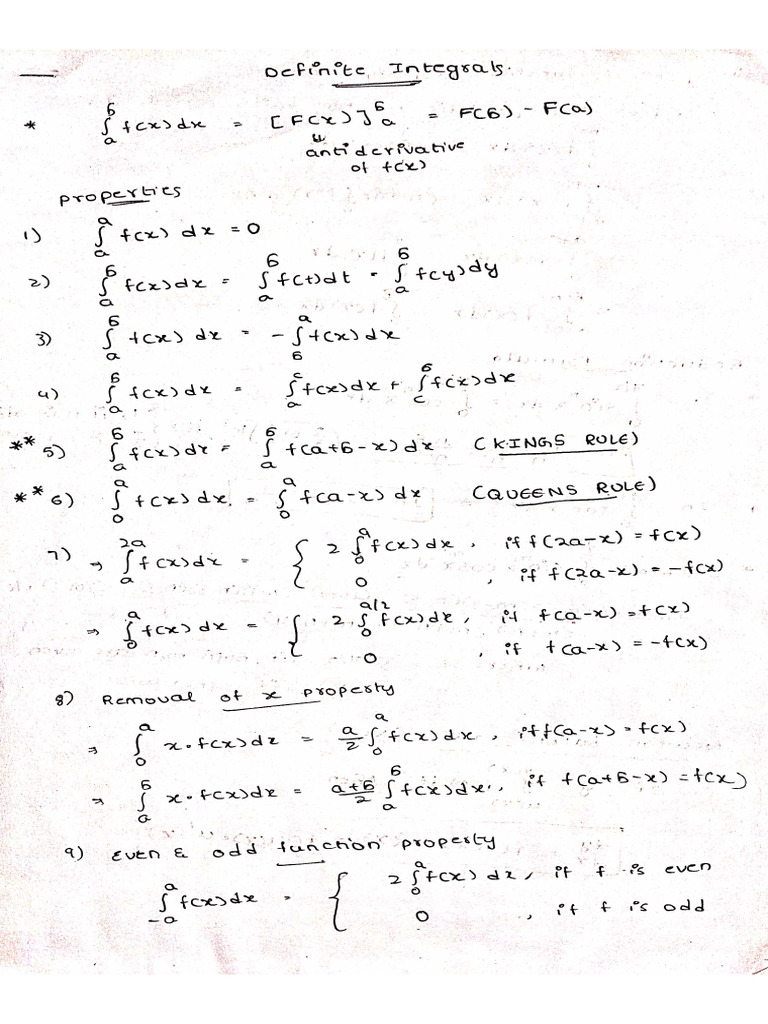 Definite Integrals.
* ∫_a^b f(x)dx = [F(x)]_a^b = F(b) - F(a)
⇓
antiderivative
of f(x)
Properties
1) ∫_a^a f(x) dx = 0
2) ∫_a^b f(x)dx = ∫_a^b f(t)dt = ∫_a^b f(y)dy
3) ∫_a^b f(x) dx = -∫_b^a f(x) dx
4) ∫_a^b f(x)dx = ∫_a^c f(x)dx + ∫_c^b f(x)dx
** 5) ∫_a^b f(x)dx = ∫_a^b f(a+b-x)dx (KINGS RULE)
** 6) ∫_0^a f(x)dx = ∫_0^a f(a-x) dx (QUEENS RULE)
7) ⇒ ∫_a^2a f(x)dx = { 2 ∫_0^a f(x)dx , if f(2a-x) = f(x)
0 , if f(2a-x) = -f(x)
⇒ ∫_0^a f(x)dx = { 2 ∫_0^a/2 f(x)dx , if f(a-x) = f(x)
0 , if f(a-x) = -f(x)
8) Removal of x property
⇒ ∫_0^a x·f(x)dx = a/2 ∫_0^a f(x)dx , if f(a-x) = f(x)
⇒ ∫_a^b x·f(x)dx = a+b/2 ∫_a^b f(x)dx , if f(a+b-x) = f(x)
9) Even & odd function property
∫_-a^a f(x)dx = { 2 ∫_0^a f(x) dx , if f is even
0 , if f is odd